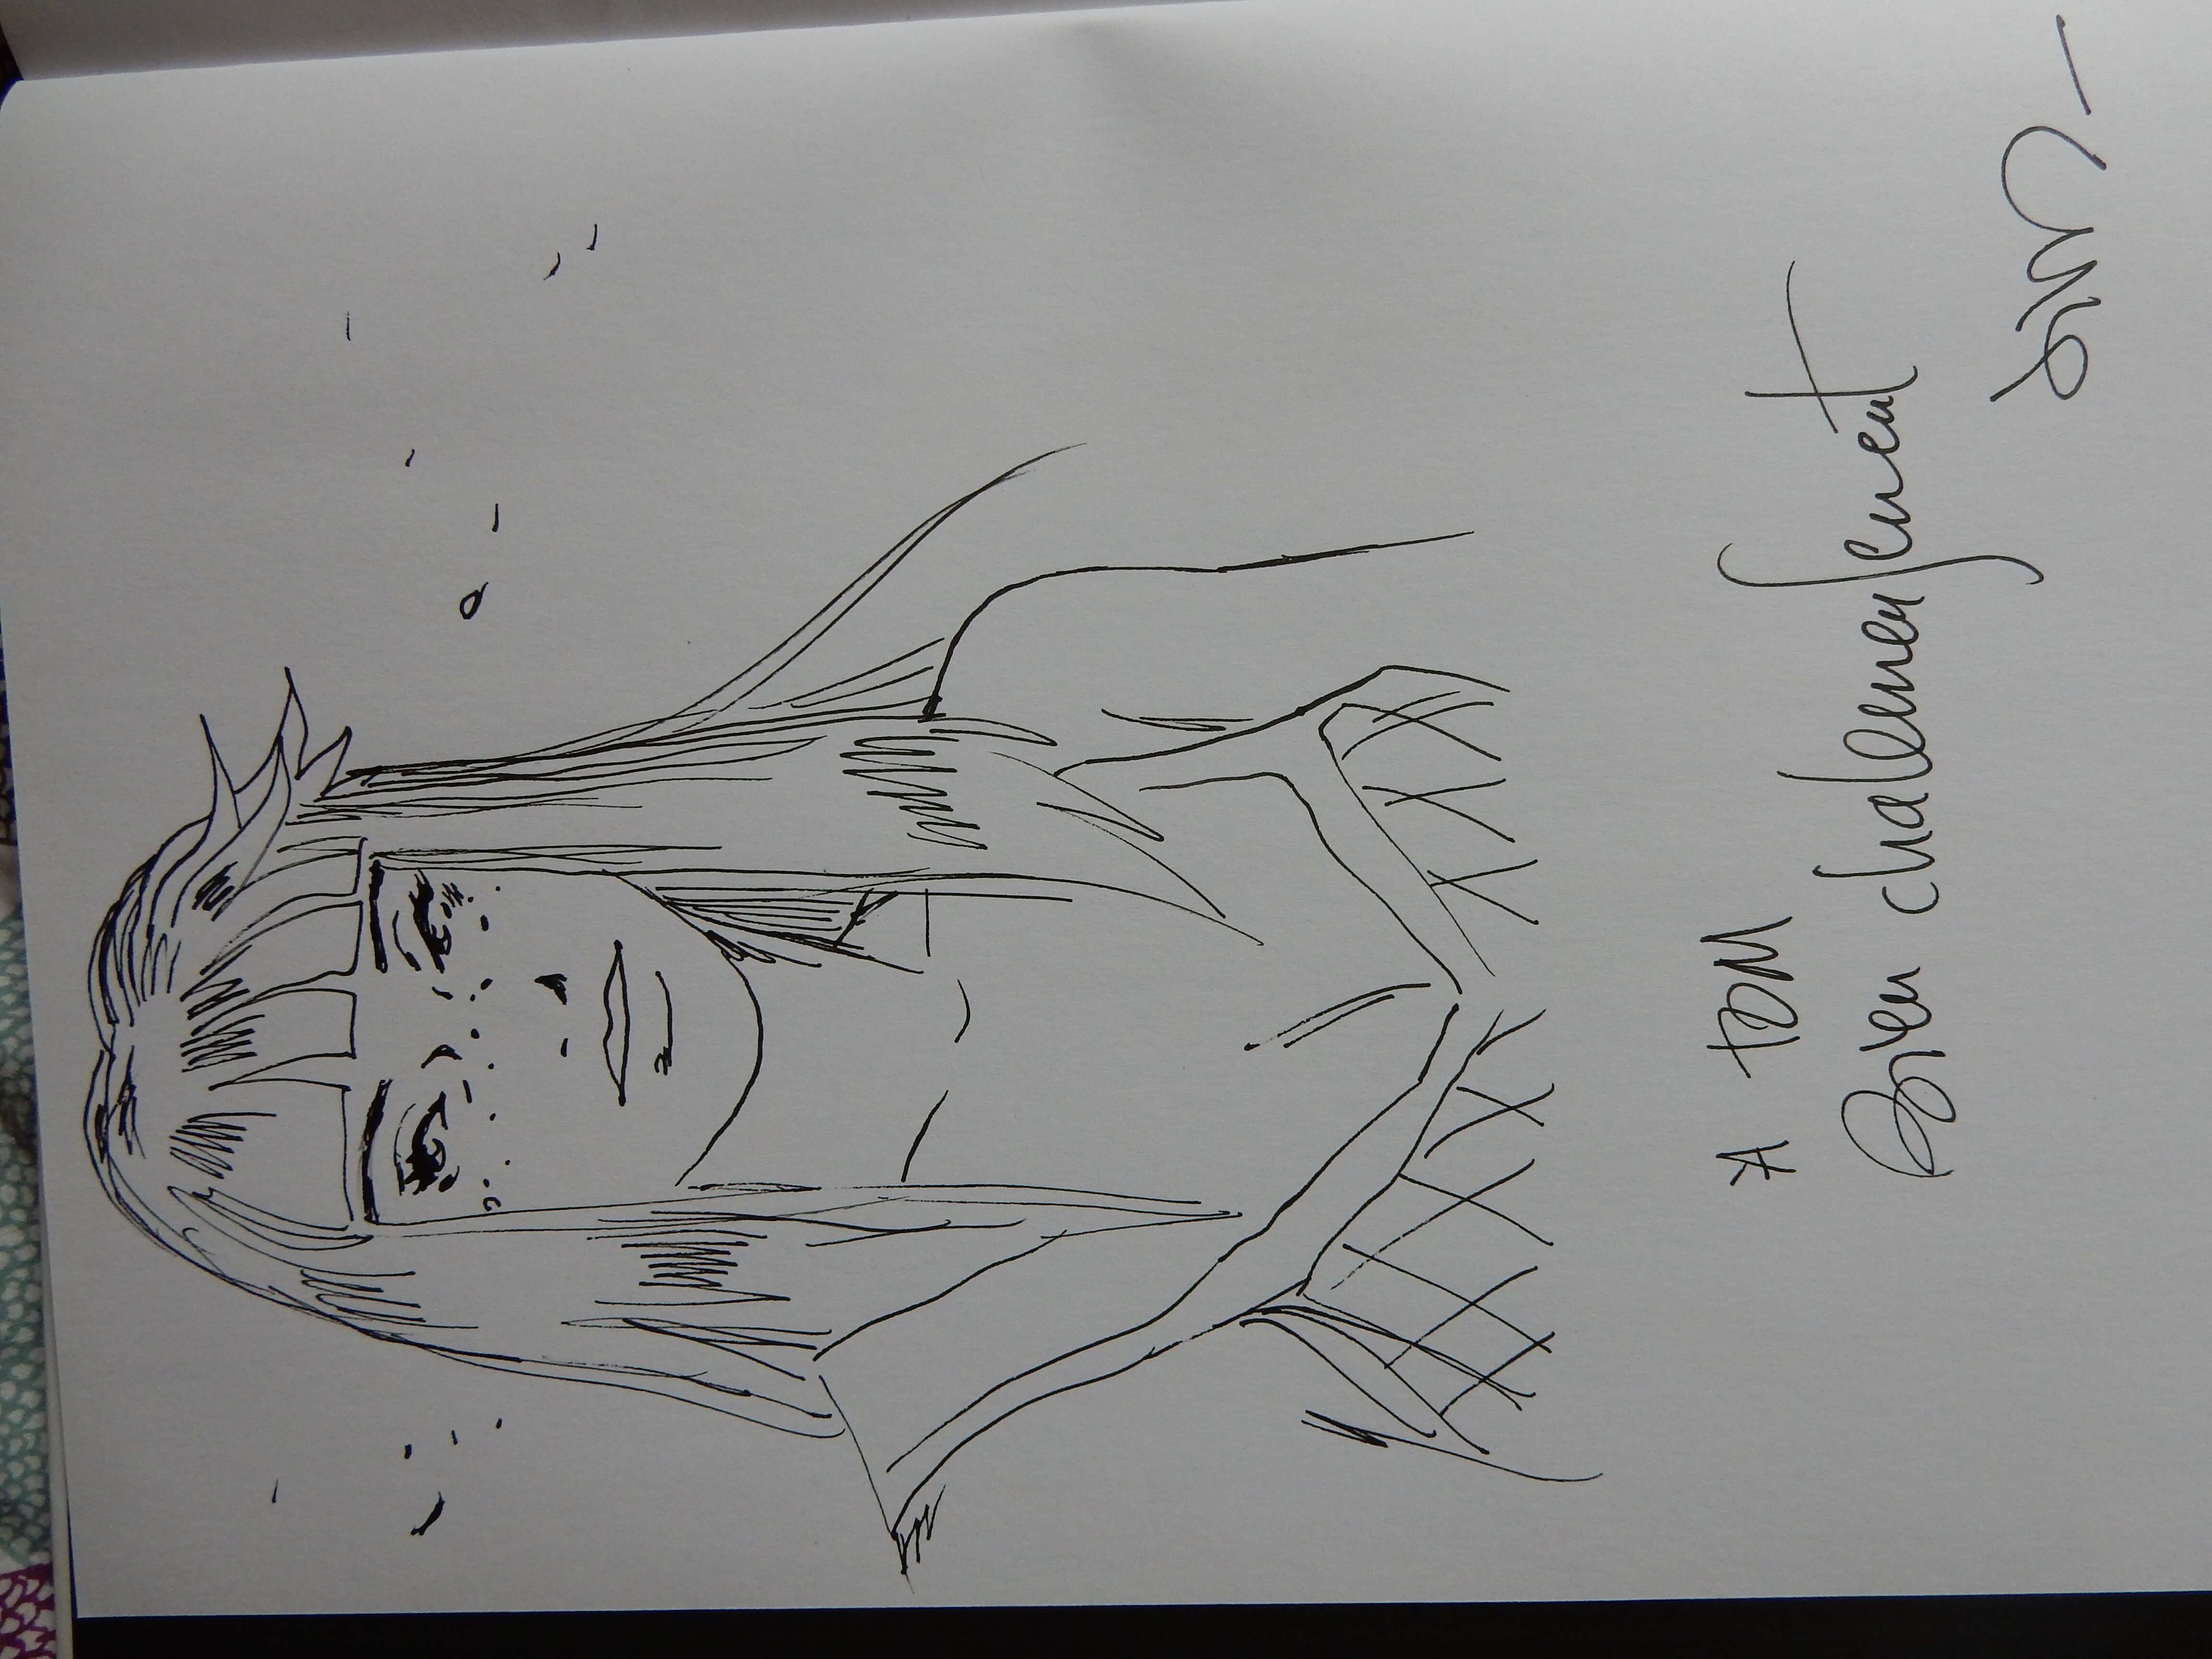 A TOM
Bien chaleureusement